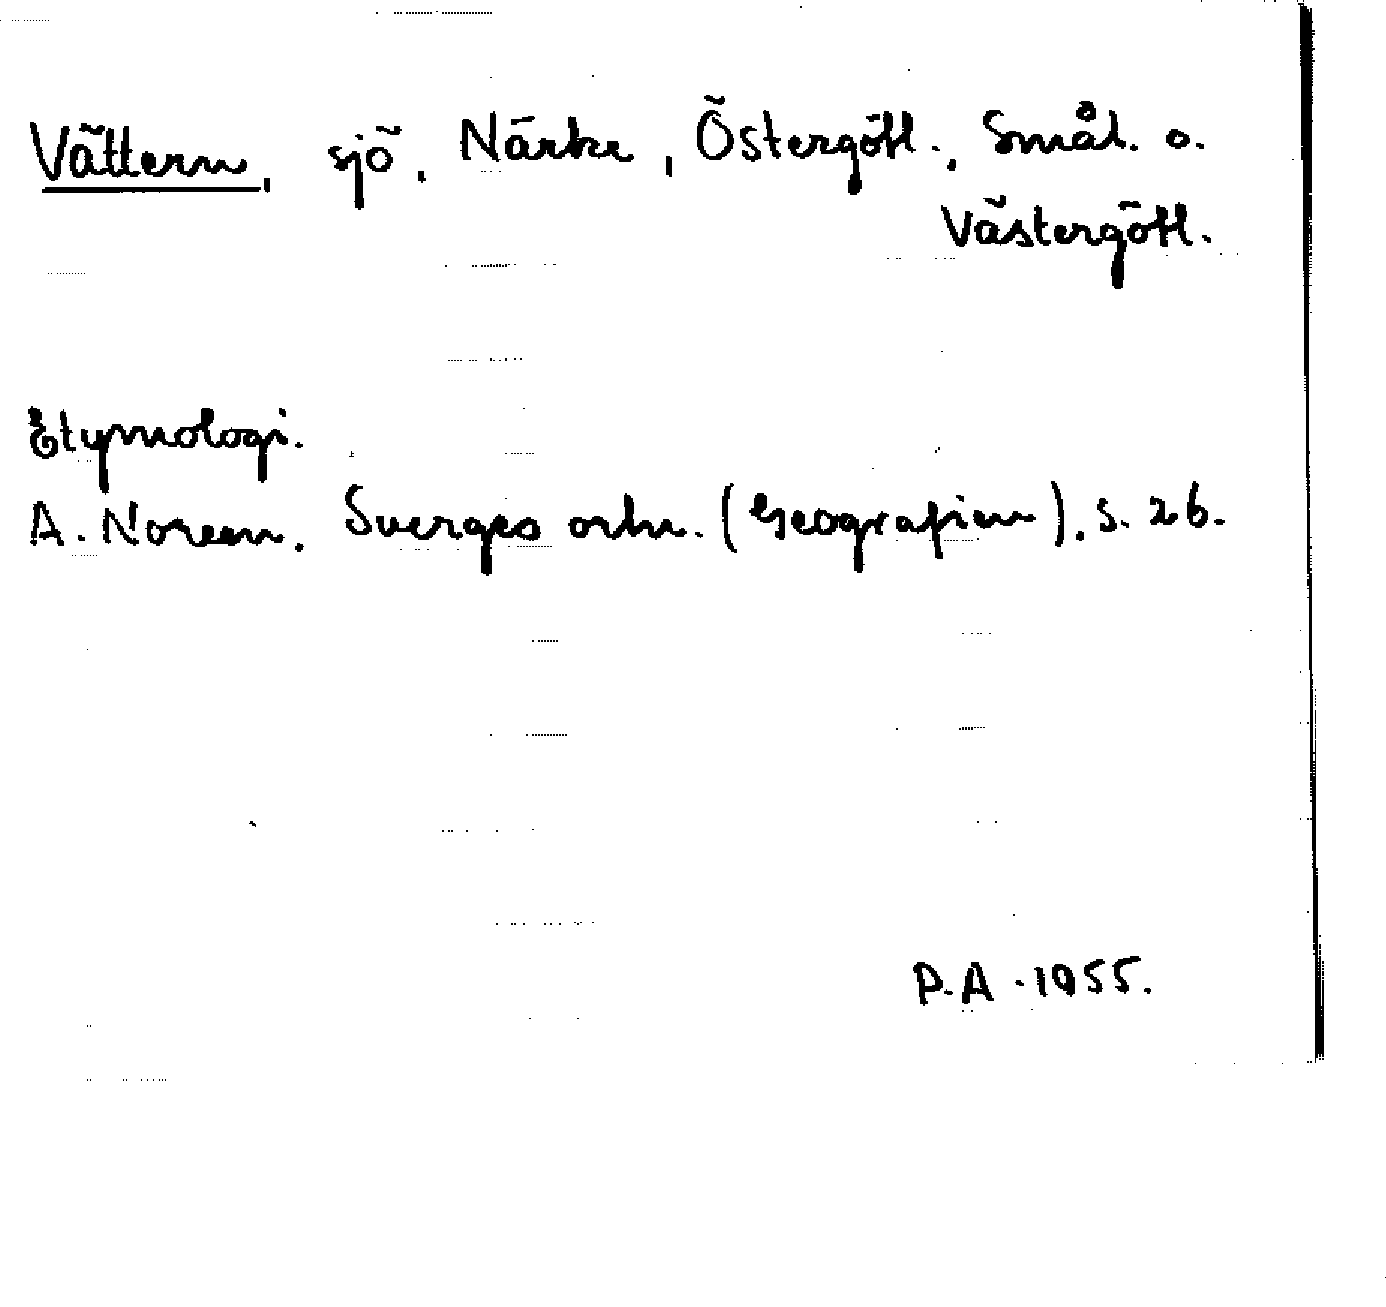 Vättern, sjö, Närke, Östergötl., Smål. o.
Västergötl.
Etymologi.
A. Noreen, Sverges ortn. (Geografien), s. 26.
P.A. 1955.